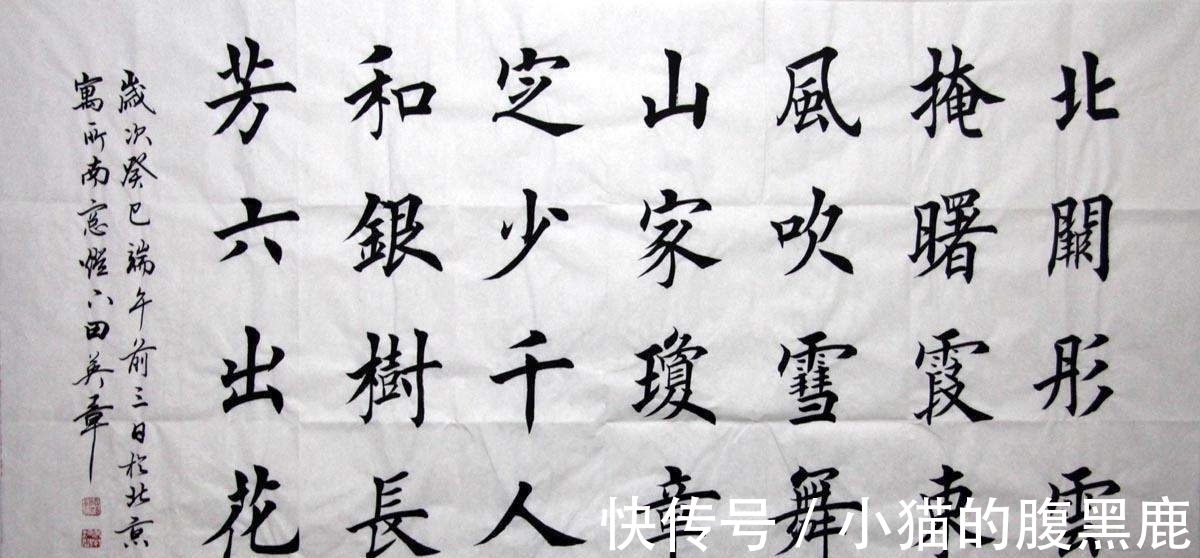 北闕彤雲
掩曙霞東
風吹雪舞
山家瓊章
定少千人
和銀樹長
芳六出花
歲次癸巳端午前三日於北京
寓所南窓燈下田英章
快传号 / 小猫的腹黑鹿